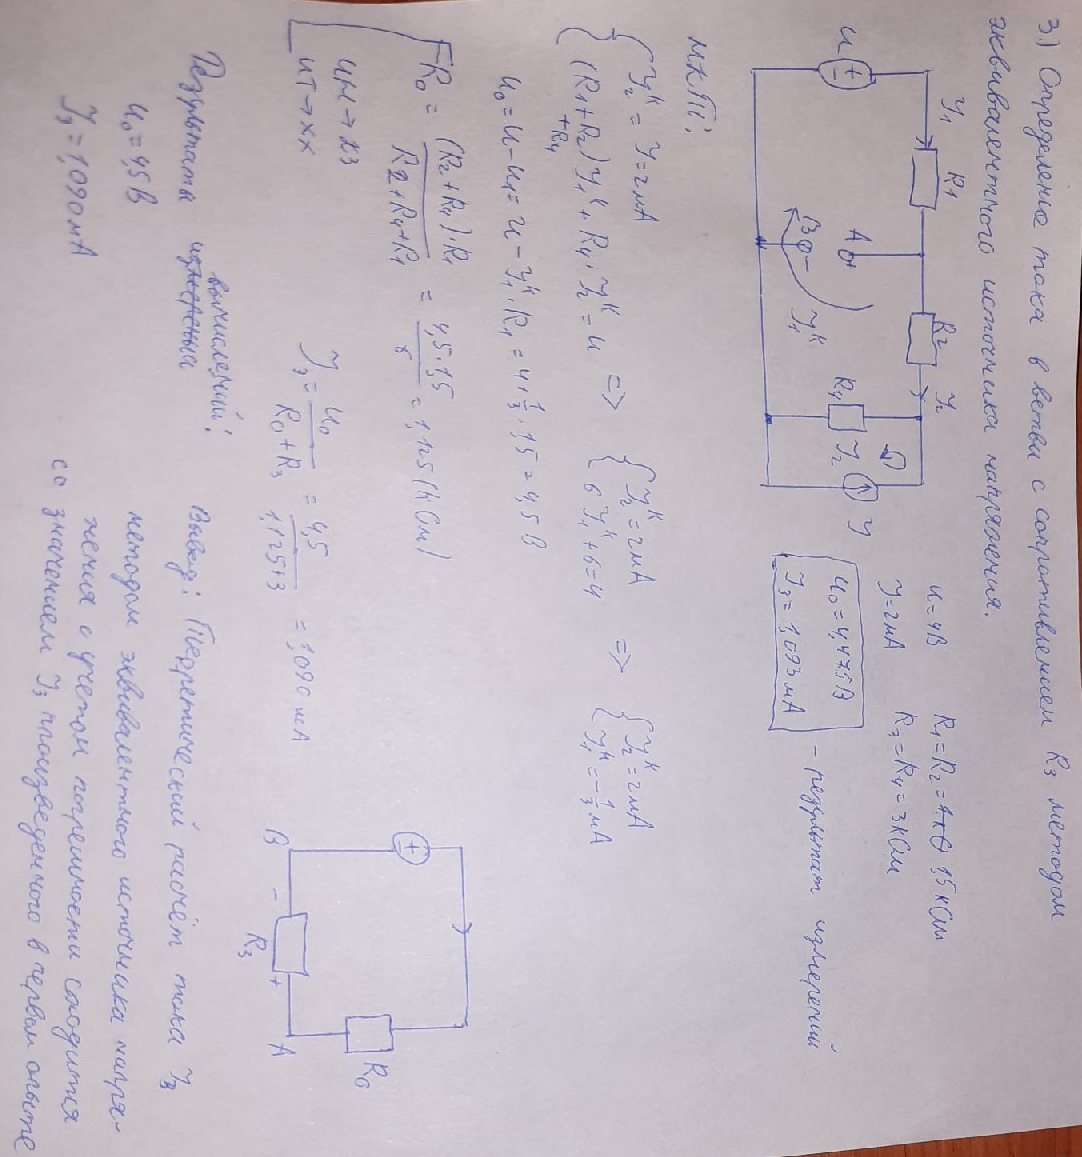 3.) Определение тока в ветви с сопротивлением R3 методом
эквивалентного источника напряжения.
J1 R1 R2 J2
U
A
B
J1ᴷ
R4
J2
J
U=4В R1=R2=1,5кОм
J=2мА R3=R4=3кОм
U0=4,475В
J3=1,093мА
– результат измерений
МКТ:
{ J2ᴷ = J=2мА
(R1+R2+R4)J1ᴷ+R4·J2ᴷ=U => { J2ᴷ=2мА
6J1ᴷ+6=4 => { J2ᴷ=2мА
J1ᴷ=-1/3мА
U0=U-U1=U-J1ᴷ·R1=4+1/3·1,5=4,5В
R0= (R2+R4)·R1 / R2+R4+R1 = 4,5·1,5 / 6 =1,125(кОм)
ИН→КЗ
ИТ→ХХ
J3= U0 / R0+R3 = 4,5 / 1,125+3 =1,090мА
B
A
R3
R0
Результаты вычислений:
U0=4,5В
J3=1,090мА
Вывод: Теоретический расчёт тока J3
методом эквивалентного источника напря-
жения с учетом погрешности сходится
со значением J3 произведенного в первом опыте